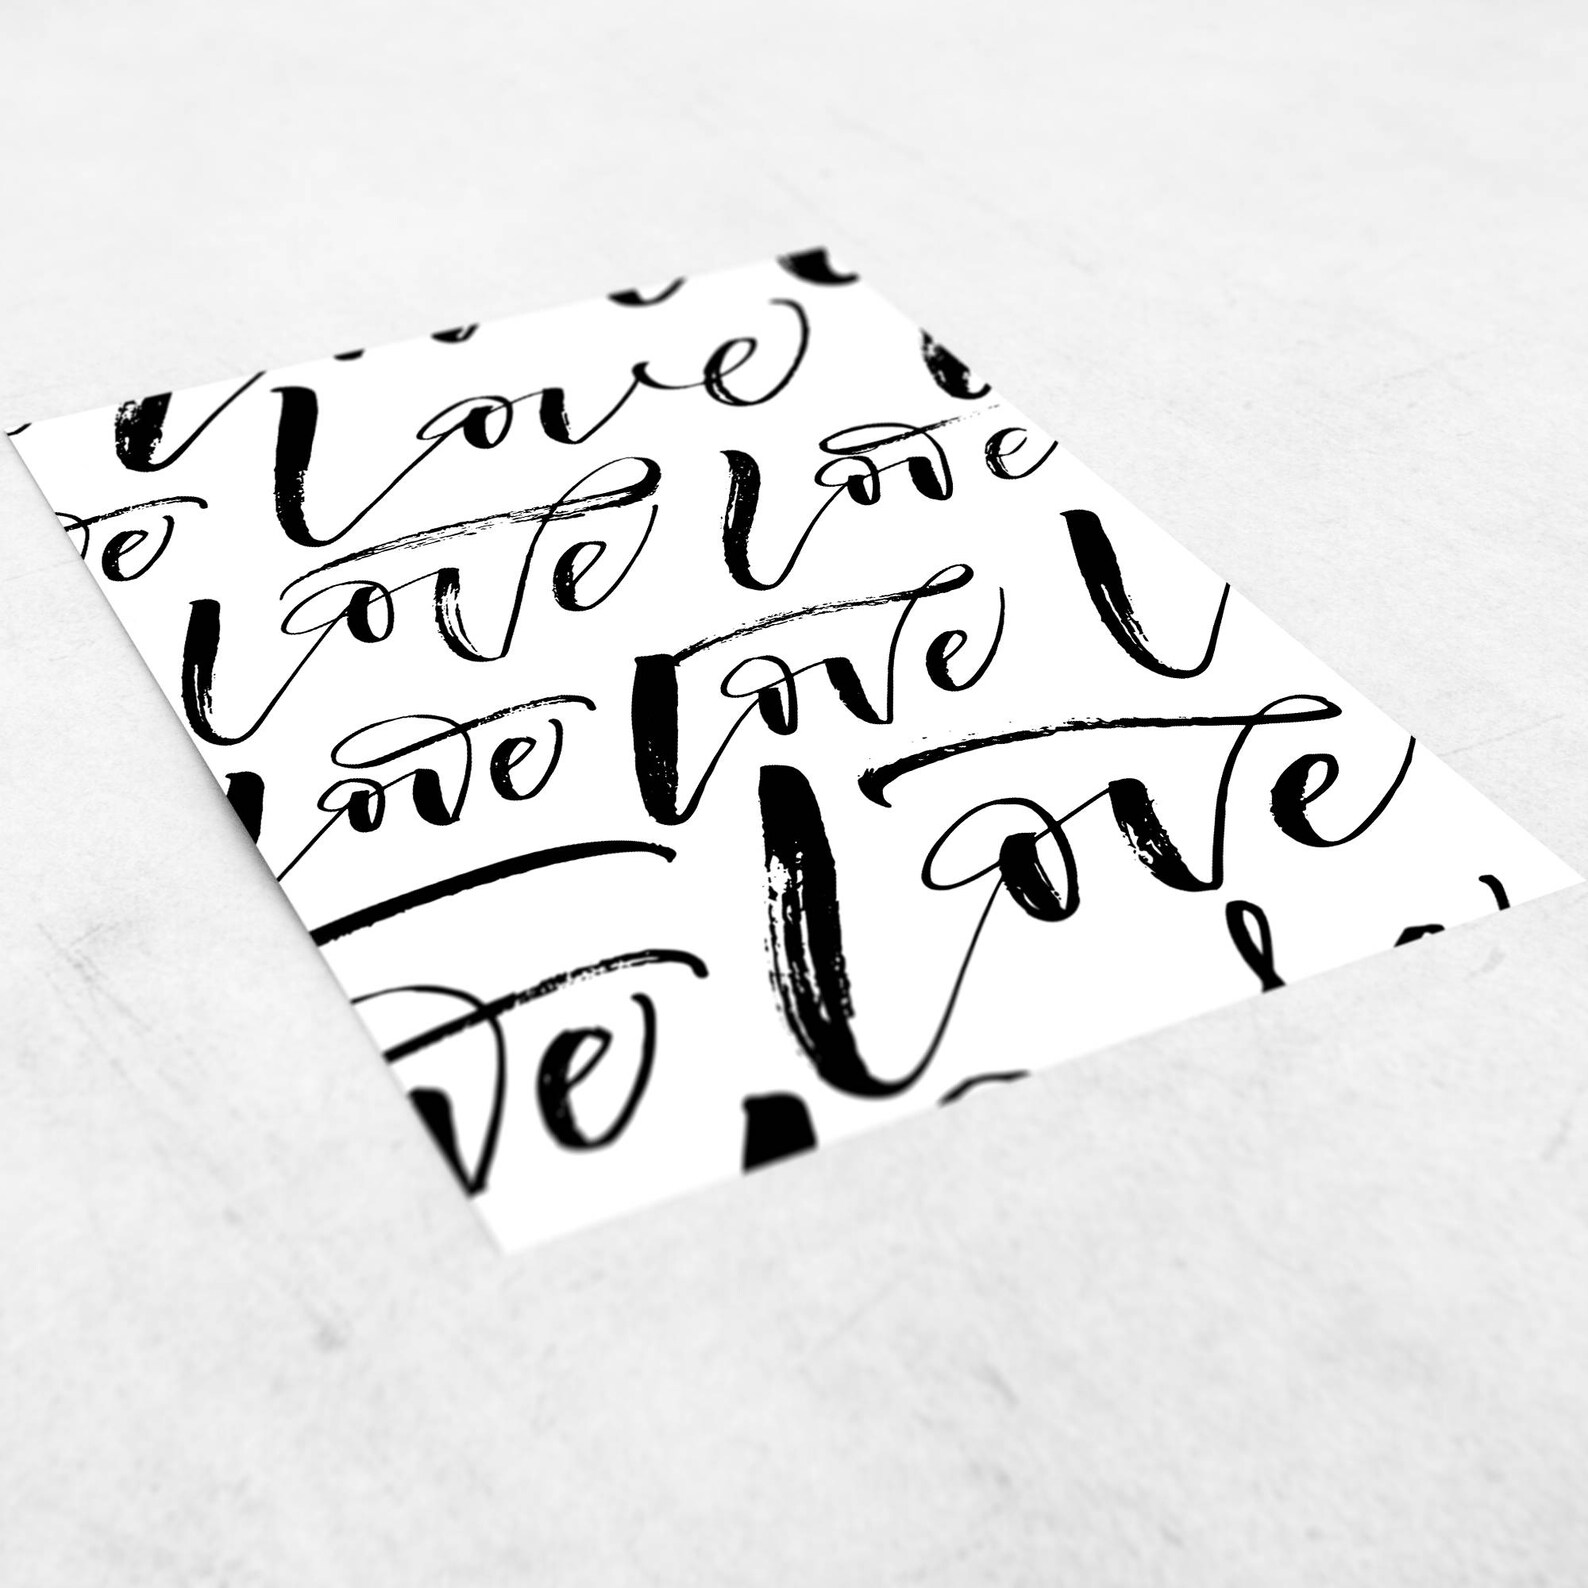 Love
Love
e Love
Love L
Love
Love
ve